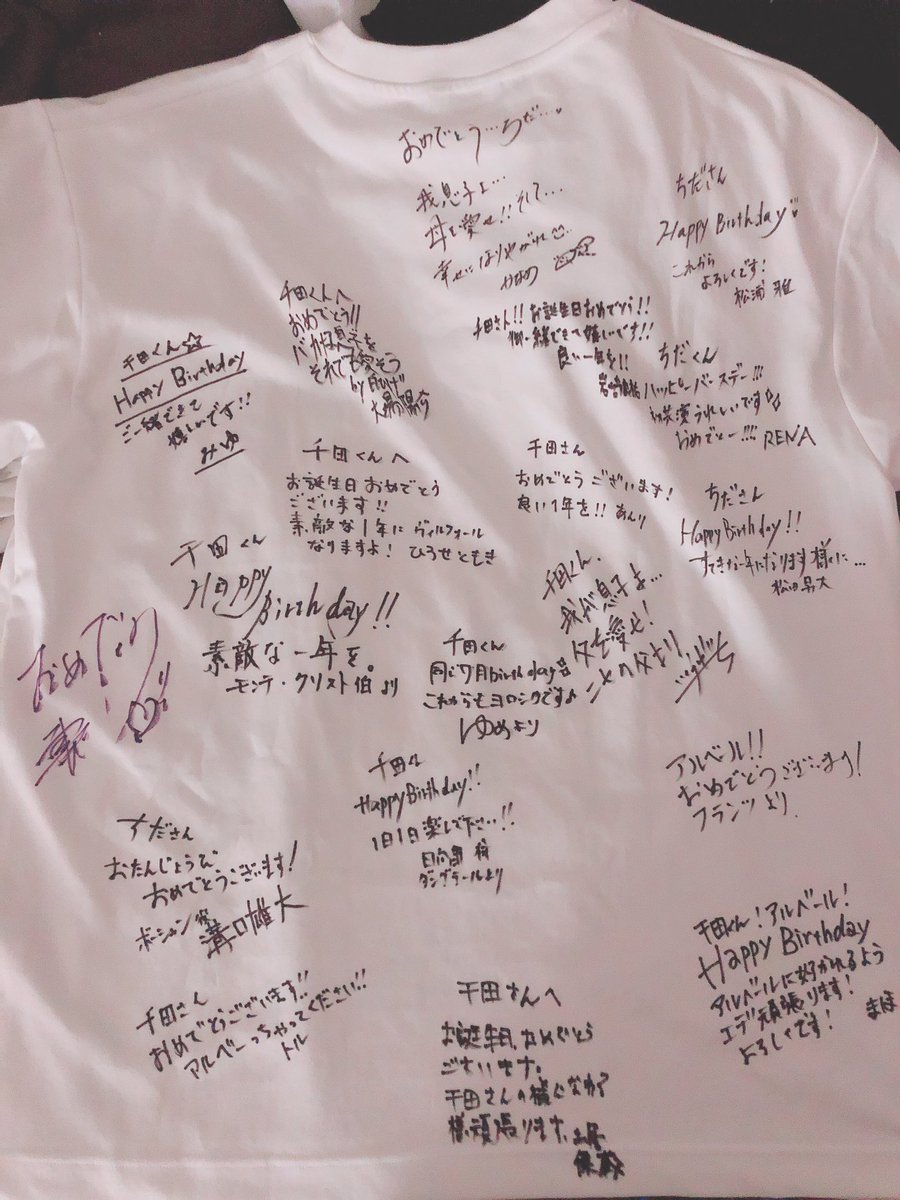 おめでとう…ちだ…
我息子よ…
母を愛せ!!そして…
幸せになりやがれ
かなめ
ちださん
Happy Birthday
これから
よろしくです!
松浦 雅
千田くんへ
おめでとう!!
バカな息子を
それでも愛そう
by
大場陽介
千田さん!! お誕生日おめでとう!!
御一緒できて嬉しいです!!
良い一年を!!
千田くん☆
Happy Birthday
ご一緒できて
嬉しいです!!
みゆ
ちだくん
ハッピーバースデー!!!
共演うれしいです
おめでとー!!!! RENA
千田くんへ
お誕生日おめでとう
ございます!!
素敵な1年に ヴィルフォール
なりますよ! ひろせともき
千田さん
おめでとうございます!
良い1年を!! あんり
ちださん
Happy Birthday!!
すてきな一年になります様に…
松田昇大
千田くん
Happy
Birthday!!
素敵な一年を。
モンテ・クリスト伯より
千田くん、
我が息子よ…
父を愛せ!
二人の父より
おめでとう
千田くん
同じ7月birthday
これからもヨロシクです♪
ゆめより
千田くん
Happy Birthday!!
1日1日楽しんで下さい!!
ダングラールより
アルベール!!
おめでとうございます!
フランツより
ちださん
おたんじょうび
おめでとうございます!
ボーシャン役
溝口雄大
千田さん
おめでとうございます!!
アルベーっちゃってください!!
トル
千田さんへ
お誕生日おめでとう
ございます。
千田さんの
様、頑張ります。
千田くん!アルベール!
Happy Birthday
アルベールに好かれるよう
エデ頑張ります!
よろしくです! まほ